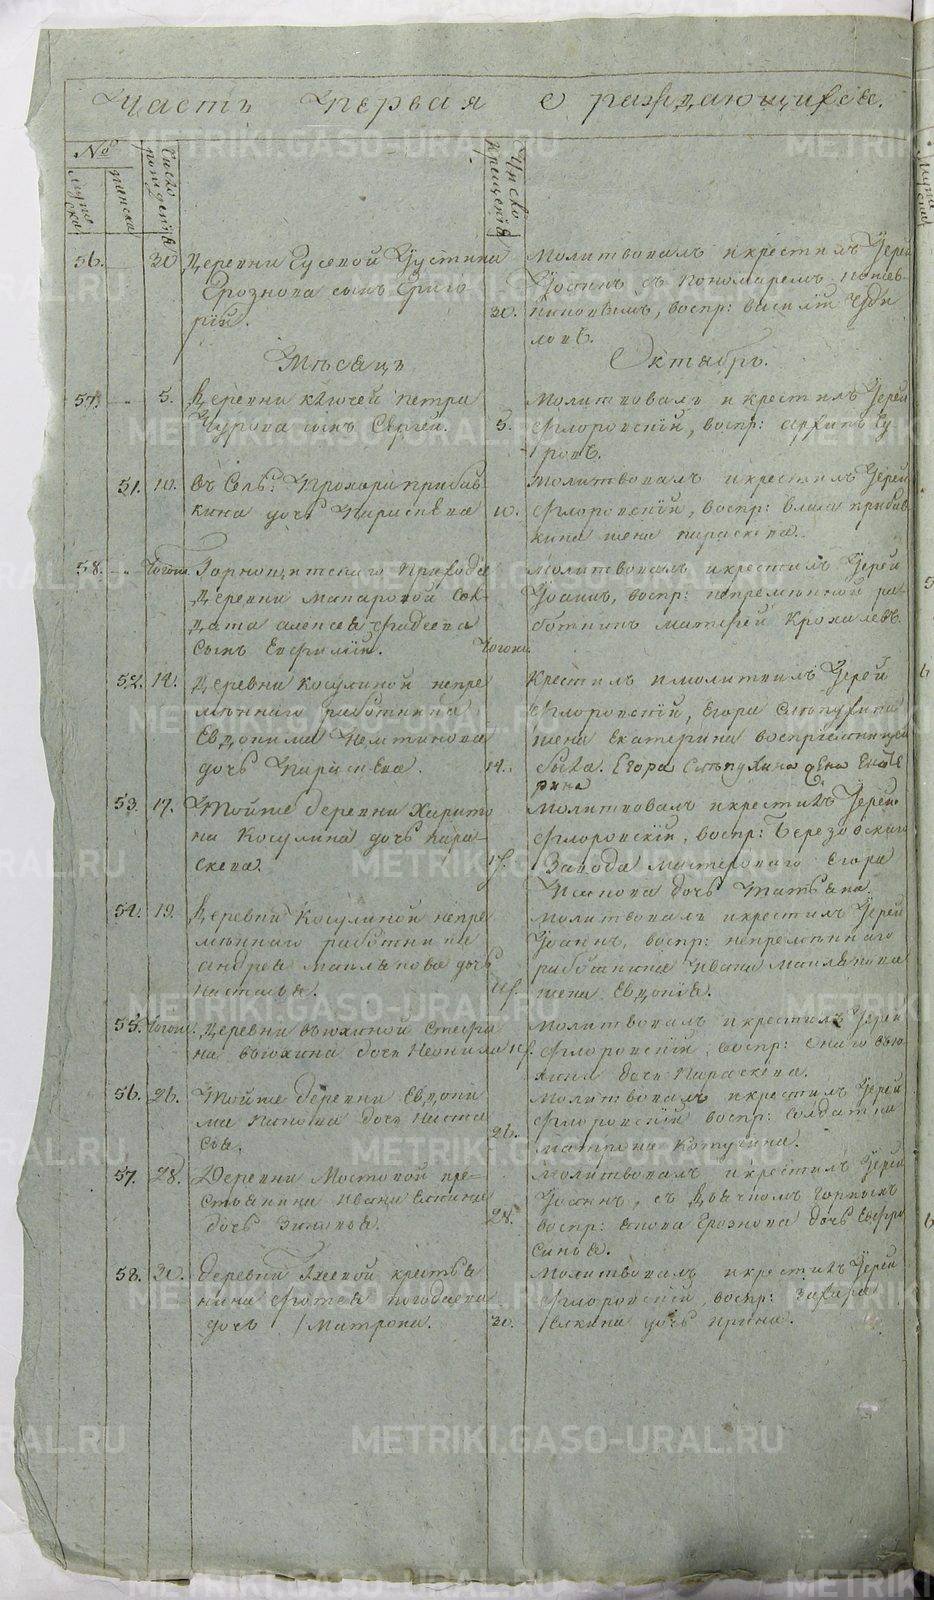 Часть первая о раждающихся.
№
мужеска
женска
Число рождения
Число крещения
56. 30 Деревни Гусевой Устина
Грознова сынъ Григо
рій.
30.
Молитвовалъ и крестилъ Іерей
Іоаннъ съ пономаремъ
воспр: василій
Месяцъ Октябрь.
57. 5. Деревни ключей петра
Чурова сынъ Сергей.
5.
Молитвовалъ и крестилъ Іерей
Флоровскій, воспр:
51. 10. Въ Сель: Прохора прибыв
кина дочь Параскева
10.
Молитвовалъ и крестилъ Іерей
Флоровскій, воспр: власа прибыв
кина жена параскева.
58. Тогож. Горнощитскаго Прихода
Деревни Макаровой Сол
дата алексея Фадеева
Сынъ Евфимій.
Тогож.
Молитвовалъ и крестилъ Іерей
Іоаннъ, воспр: непременной ра
ботникъ Матфей Крохалевъ.
52. 14. Деревни Косулиной непре
меннаго работника
Евдокима
дочь Параскева.
14.
Крестилъ и молитвилъ Іерей
Флоровскій, Егора Слепухина
жена Екатерина восприемницей
была. Егора Слепухина жена Екате
рина
53. 17. Тойже деревни Харито
на Косулина дочь Пара
скева.
17.
Молитвовалъ и крестилъ Іерей
Флоровскій, воспр: Березовскаго
Завода мастероваго Егора
Исакова дочь Татьяна.
54. 19. Деревни Косулиной непре
меннаго работника
андрея дочь
Настасья.
19.
Молитвовалъ и крестилъ Іерей
Іоаннъ, воспр: непременнаго
работника Ивана
жена Евдокія.
55. Тогож. Деревни вьюхиной Стефа
на вьюхина дочь Неонила
19.
Молитвовалъ и крестилъ Іерей
Флоровскій, воспр: Онаго вью
хина дочь Параскева.
56. 26. Тойже деревни Евдоки
ма Попова дочь Наста
сья.
26.
Молитвовалъ и крестилъ Іерей
Флоровскій воспр: Солдатка
матрона
57. 28. Деревни Мостовой кре-
стьянина Ивана Елкина
дочь Зиновья.
28.
Молитвовалъ и крестилъ Іерей
Іоаннъ, съ Дьячкомъ Горныхъ
воспр: якова Грознова дочь Евфро
синья.
58. 30. Деревни Гусевой крестья
нина Фотея погодаева
дочь Матрона.
30.
Молитвовалъ и крестилъ Іерей
Флоровскій, воспр: Захара
Елкина дочь Ирина.
METRIKI.GASO-URAL.RU